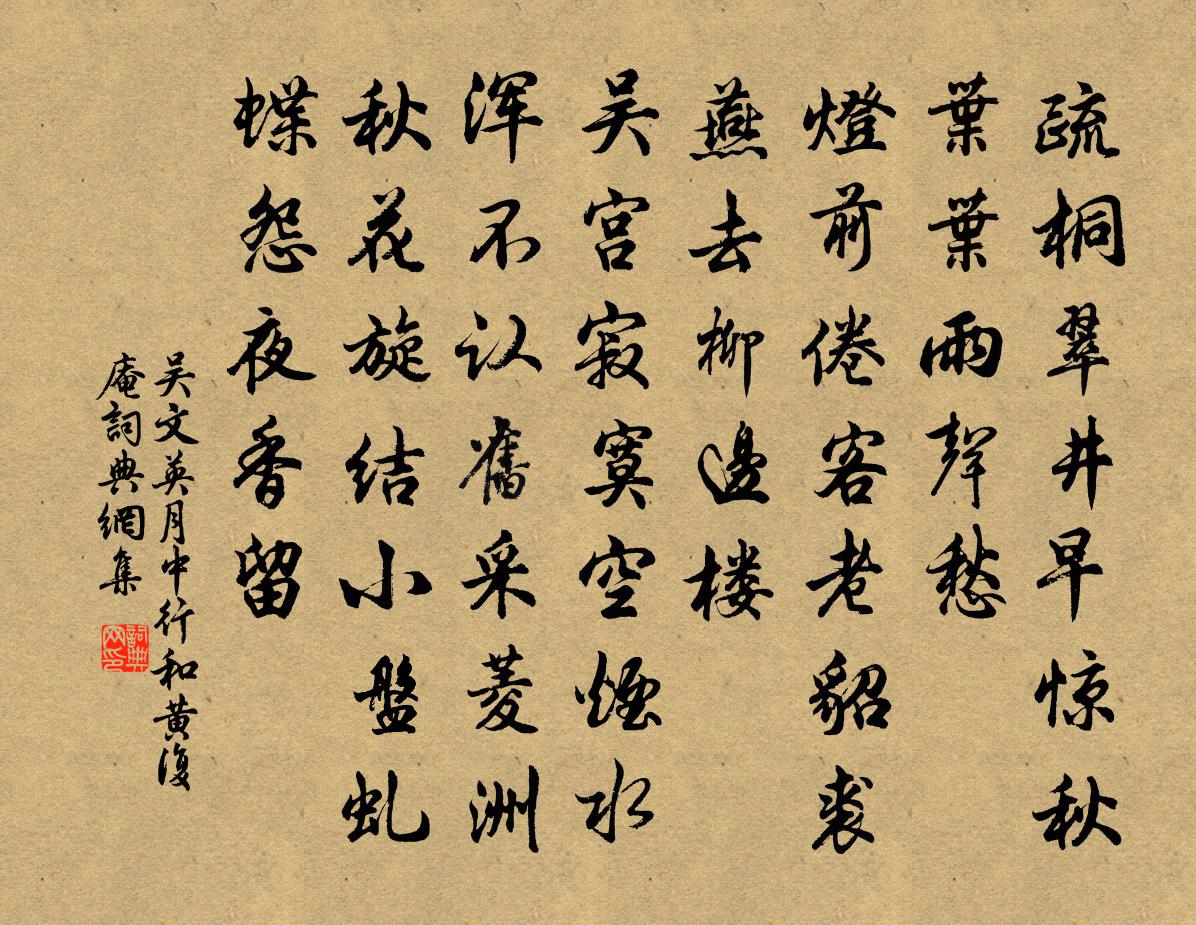 疏桐翠井早惊秋
葉葉雨聲愁
燈前倦客老貂裘
燕去柳邊楼
吴宫寂寞空煙水
浑不认舊采菱洲
秋花旋结小盤虬
蝶怨夜香留
吴文英月中行和黄復
庵詞典網集
詞典网印